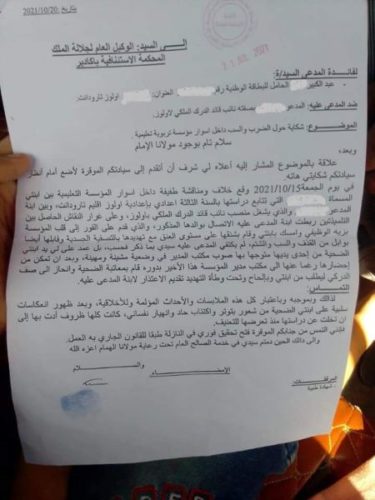 تاريخ :2021/10/20
إلى السيد: الوكيل العام لجلالة الملك
المحكمة الاستئنافية بأكادير
لفائدة المدعى السيد/ة:
عبد الكبير الحامل للبطاقة الوطنية رقم العنوان: اولوز تارودانت.
ضد المدعى عليه: المدعو بصفته نائب قائد الدرك الملكي لاولوز.
الموضوع: شكاية حول الضرب والسب داخل اسوار مؤسسة تربوية تعليمية.
سلام تام بوجود مولانا الإمام
وبعد،
علاقة بالموضوع المشار إليه أعلاه لي شرف أن أتقدم إلى سيادتكم الموقرة لأضع أمام أنظار
سيادتكم شكايتي هاته.
في يوم الجمعة 2021/10/15 وقع خلاف ومناقشة طفيفة داخل اسوار المؤسسة التعليمية بين ابنتي
المسماة التي تتابع دراستها بالسنة الثالثة اعدادي بإعدادية اولوز اقليم تارودانت، وبين ابنة
المدعو والذي يشغل منصب نائب قائد الدرك الملكي بأولوز، وعلى غرار النقاش الحاصل بين
التلميذتين ربطت ابنة المدعى عليه الاتصال بوالدها المذكور، والذي قدم على الفور إلى قلب المؤسسة
بزيه الوظيفي وامسك بابنتي وقام بشنقها على مستوى العنق مع تهديدها بالتصفية الجسدية وقابلها أيضا
بوابل من القذف والسب والشتم، لم يكتفي المدعى عليه سيدي بما ذكر فحسب، بل عمد على لي يد ابنتي
الضحية من إحدى يديها متوجها بها صوب مكتب المدير في وضعية مشينة ومهينة، وبعد ان تمكن من
إحضارها رغما عنها الى مكتب مدير المؤسسة هذا الأخير بدوره قام بمعاتبة الضحية وانحاز الى صف
الدركي ليطلب من ابنتي وبإلحاح وتحت وطأة التهديد تقديم الاعتذار لابنة المدعى عليه.
التماس:
لذلك وبموجبه وباعتبار كل هذه الملابسات والأحداث المؤلمة وللأخلاقية، وبعد ظهور انعكاسات
سلبية على ابنتي الضحية من شعور بتوتر واكتئاب حاد وانهيار نفساني، كانت كلها ظروف أدت بها إلى
ان تخلت عن دراستها منذ تعرضها للتعنيف.
فإنني التمس من جنابكم الموقرة فتح تحقيق فوري في النازلة طبقا للقانون الجاري به العمل.
وإلى ذالك الحين دمتم سيدي في خدمة الصالح العام تحت رعاية مولانا الهمام اعزه الله
والسلام
الإمضاء
المرفقات:
شهادة طبية